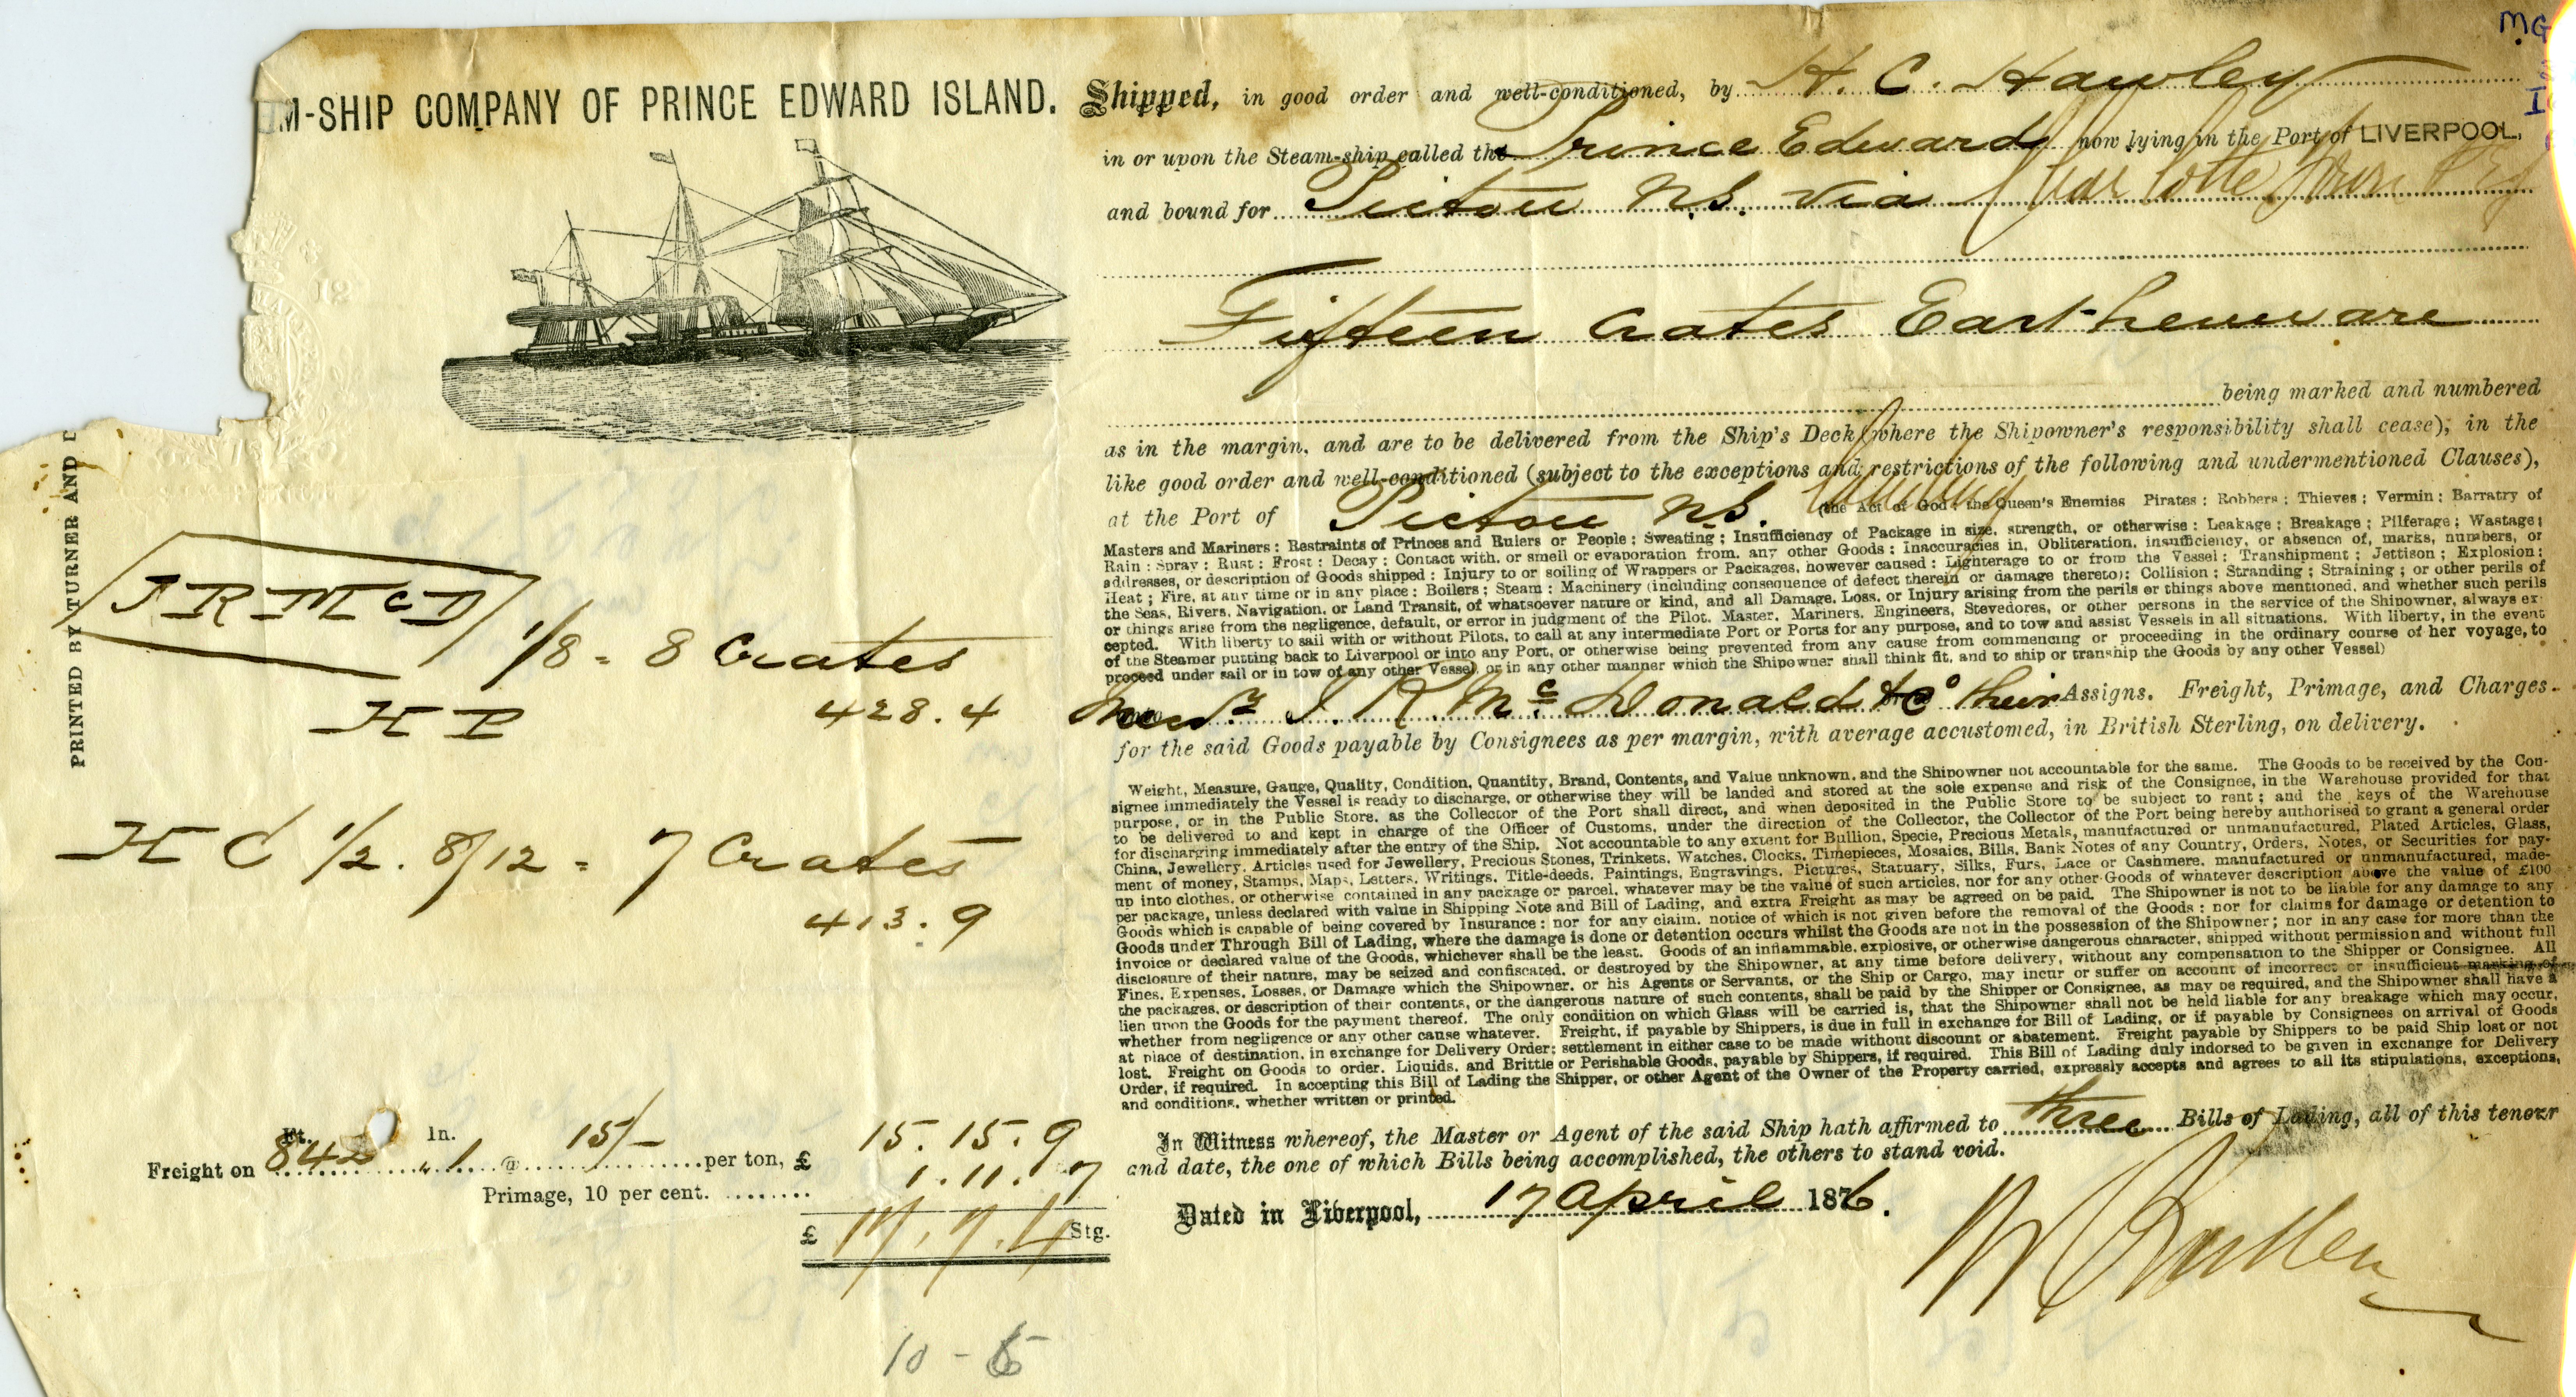 M-SHIP COMPANY OF PRINCE EDWARD ISLAND.
PRINTED BY TURNER AND D
J R McD
1/8 = 8 Crates
H P 428.4
H C 1/2. 8/12 = 7 Crates
413.9
Freight on 842 Ft. 1 In. @ 15/- per ton, £ 15.15.9
Primage, 10 per cent. 1.11.7
£ 17.7.4 Stg.
10 - 6
M.G
Shipped, in good order and well-conditioned, by H. C. Hawley
in or upon the Steam-ship called the Prince Edward now lying in the Port of LIVERPOOL,
and bound for Pictou N.S. via Charlottetown PEI
Fifteen Crates Earthenware
being marked and numbered
as in the margin, and are to be delivered from the Ship's Deck (where the Shipowner's responsibility shall cease), in the
like good order and well-conditioned (subject to the exceptions and restrictions of the following and undermentioned Clauses),
at the Port of Pictou N.S. (the Act of God : the Queen's Enemies Pirates : Robbers : Thieves ; Vermin : Barratry of
Masters and Mariners : Restraints of Princes and Rulers or People : Sweating ; Insufficiency of Package in size, strength, or otherwise : Leakage ; Breakage ; Pilferage ; Wastage ;
Rain : Spray : Rust : Frost : Decay : Contact with, or smell or evaporation from, any other Goods : Inaccuracies in, Obliteration, insufficiency, or absence of, marks, numbers, or
addresses, or description of Goods shipped : Injury to or soiling of Wrappers or Packages, however caused : Lighterage to or from the Vessel : Transhipment ; Jettison ; Explosion :
Heat ; Fire, at any time or in any place : Boilers ; Steam : Machinery (including consequence of defect therein or damage thereto): Collision : Stranding ; Straining ; or other perils of
the Seas, Rivers, Navigation, or Land Transit, of whatsoever nature or kind, and all Damage, Loss, or Injury arising from the perils or things above mentioned, and whether such perils
or things arise from the negligence, default, or error in judgment of the Pilot, Master, Mariners, Engineers, Stevedores, or other persons in the service of the Shipowner, always ex-
cepted. With liberty to sail with or without Pilots, to call at any intermediate Port or Ports for any purpose, and to tow and assist Vessels in all situations. With liberty, in the event
of the Steamer putting back to Liverpool or into any Port, or otherwise being prevented from any cause from commencing or proceeding in the ordinary course of her voyage, to
proceed under sail or in tow of any other Vessel, or in any other manner which the Shipowner shall think fit, and to ship or tranship the Goods by any other Vessel)
Messrs J. R. McDonald & Co their Assigns. Freight, Primage, and Charges
for the said Goods payable by Consignees as per margin, with average accustomed, in British Sterling, on delivery.
Weight, Measure, Gauge, Quality, Condition, Quantity, Brand, Contents, and Value unknown, and the Shipowner not accountable for the same. The Goods to be received by the Con-
signee immediately the Vessel is ready to discharge, or otherwise they will be landed and stored at the sole expense and risk of the Consignee, in the Warehouse provided for that
purpose, or in the Public Store, as the Collector of the Port shall direct, and when deposited in the Public Store to be subject to rent ; and the keys of the Warehouse
to be delivered to and kept in charge of the Officer of Customs, under the direction of the Collector, the Collector of the Port being hereby authorised to grant a general order
for discharging immediately after the entry of the Ship. Not accountable to any extent for Bullion, Specie, Precious Metals, manufactured or unmanufactured, Plated Articles, Glass,
China, Jewellery, Articles used for Jewellery, Precious Stones, Trinkets, Watches, Clocks, Timepieces, Mosaics, Bills, Bank Notes of any Country, Orders, Notes, or Securities for pay-
ment of money, Stamps, Maps, Letters, Writings, Title-deeds, Paintings, Engravings, Pictures, Statuary, Silks, Furs, Lace or Cashmere, manufactured or unmanufactured, made-
up into clothes, or otherwise contained in any package or parcel, whatever may be the value of such articles, nor for any other Goods of whatever description above the value of £100
per package, unless declared with value in Shipping Note and Bill of Lading, and extra Freight as may be agreed on be paid. The Shipowner is not to be liable for any damage to any
Goods which is capable of being covered by Insurance : nor for any claim, notice of which is not given before the removal of the Goods : nor for claims for damage or detention to
Goods under Through Bill of Lading, where the damage is done or detention occurs whilst the Goods are not in the possession of the Shipowner ; nor in any case for more than the
invoice or declared value of the Goods, whichever shall be the least. Goods of an inflammable, explosive, or otherwise dangerous character, shipped without permission and without full
disclosure of their nature, may be seized and confiscated, or destroyed by the Shipowner, at any time before delivery, without any compensation to the Shipper or Consignee. All
Fines, Expenses, Losses, or Damage which the Shipowner, or his Agents or Servants, or the Ship or Cargo, may incur or suffer on account of incorrect or insufficient marking of
the packages, or description of their contents, or the dangerous nature of such contents, shall be paid by the Shipper or Consignee, as may be required, and the Shipowner shall have a
lien upon the Goods for the payment thereof. The only condition on which Glass will be carried is, that the Shipowner shall not be held liable for any breakage which may occur,
whether from negligence or any other cause whatever. Freight, if payable by Shippers, is due in full in exchange for Bill of Lading, or if payable by Consignees on arrival of Goods
at place of destination, in exchange for Delivery Order; settlement in either case to be made without discount or abatement. Freight payable by Shippers to be paid Ship lost or not
lost. Freight on Goods to order, Liquids, and Brittle or Perishable Goods, payable by Shippers, if required. This Bill of Lading duly indorsed to be given in exchange for Delivery
Order, if required. In accepting this Bill of Lading the Shipper, or other Agent of the Owner of the Property carried, expressly accepts and agrees to all its stipulations, exceptions,
and conditions, whether written or printed.
In Witness whereof, the Master or Agent of the said Ship hath affirmed to three Bills of Lading, all of this tenour
and date, the one of which Bills being accomplished, the others to stand void.
Dated in Liverpool, 17 April 1876.